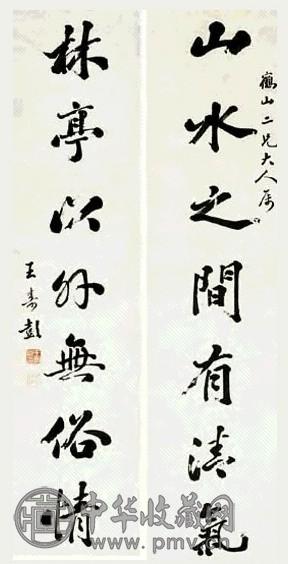 鶴山二兄大人属
山水之間有清氣
林亭以外無俗情
王壽彭
中华收藏网
www.pmv.cn